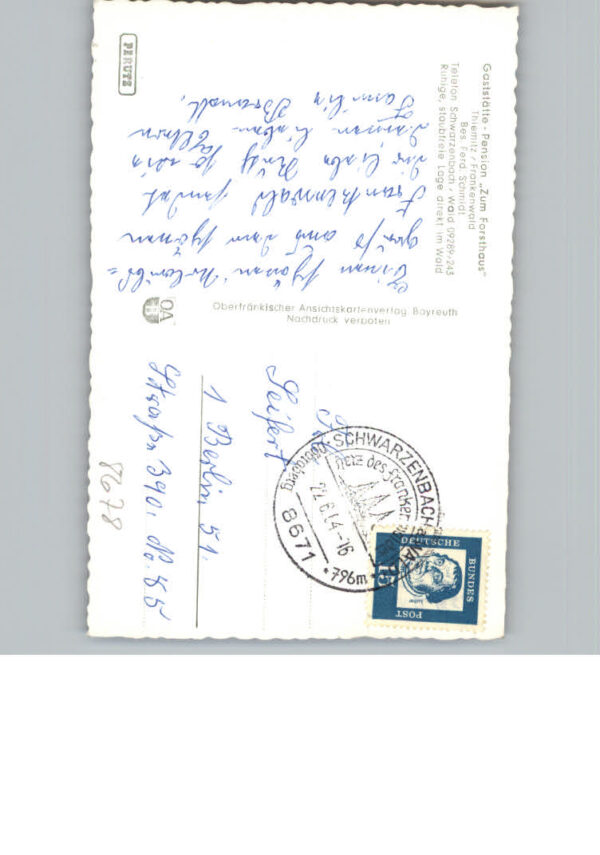 Gaststätte - Pension „Zum Forsthaus"
Thiemitz / Frankenwald
Bes. Ferd. Schmidt
Telefon Schwarzenbach / Wald 09289-243
Ruhige, staubfreie Lage direkt im Wald
Einen schönen Urlaubs=
gruß aus dem schönen
Frankenwald sendet
Dir liebe so wie
Deinen lieben Eltern
Familie
PERUTZ
OA
Oberfränkischer Ansichtskartenverlag Bayreuth
Nachdruck verboten
SCHWARZENBACH
Herz des Franken
22.6.64-16
8671
Döbraberg
796m
DEUTSCHE
BUNDES
POST
15
Seifert
1 Berlin 51.
Straße 390. Nr. 55
8678